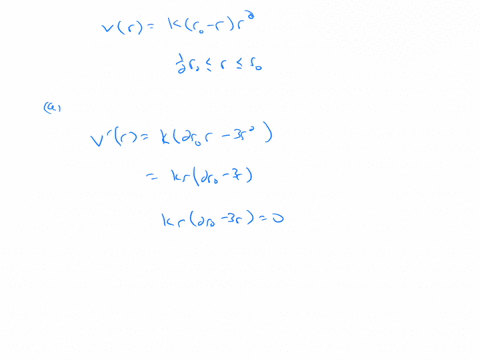 v(r) = k(r₀-r)r²
½r₀ ≤ r ≤ r₀
(a)
v'(r) = k(2r₀r - 3r²)
= kr(2r₀-3r)
kr(2r₀-3r) = 0